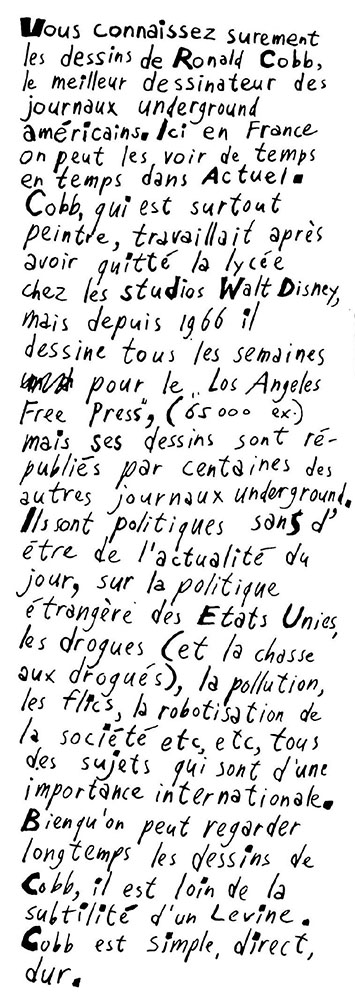 Vous connaissez surement
les dessins de Ronald Cobb,
le meilleur dessinateur des
journaux underground
américains. Ici en France
on peut les voir de temps
en temps dans Actuel.
Cobb, qui est surtout
peintre, travaillait après
avoir quitté la lycée
chez les studios Walt Disney,
mais depuis 1966 il
dessine tous les semaines
pour le "Los Angeles
Free Press", (65000 ex.)
mais ses dessins sont ré-
publiés par centaines des
autres journaux underground.
Ils sont politiques sans d'
être de l'actualité du
jour, sur la politique
étrangère des Etats Unies,
les drogues (et la chasse
aux drogués), la pollution,
les flics, la robotisation de
la société etc, etc, tous
des sujets qui sont d'une
importance internationale.
Bienqu'on peut regarder
longtemps les dessins de
Cobb, il est loin de la
subtilité d'un Levine.
Cobb est simple, direct,
dur.